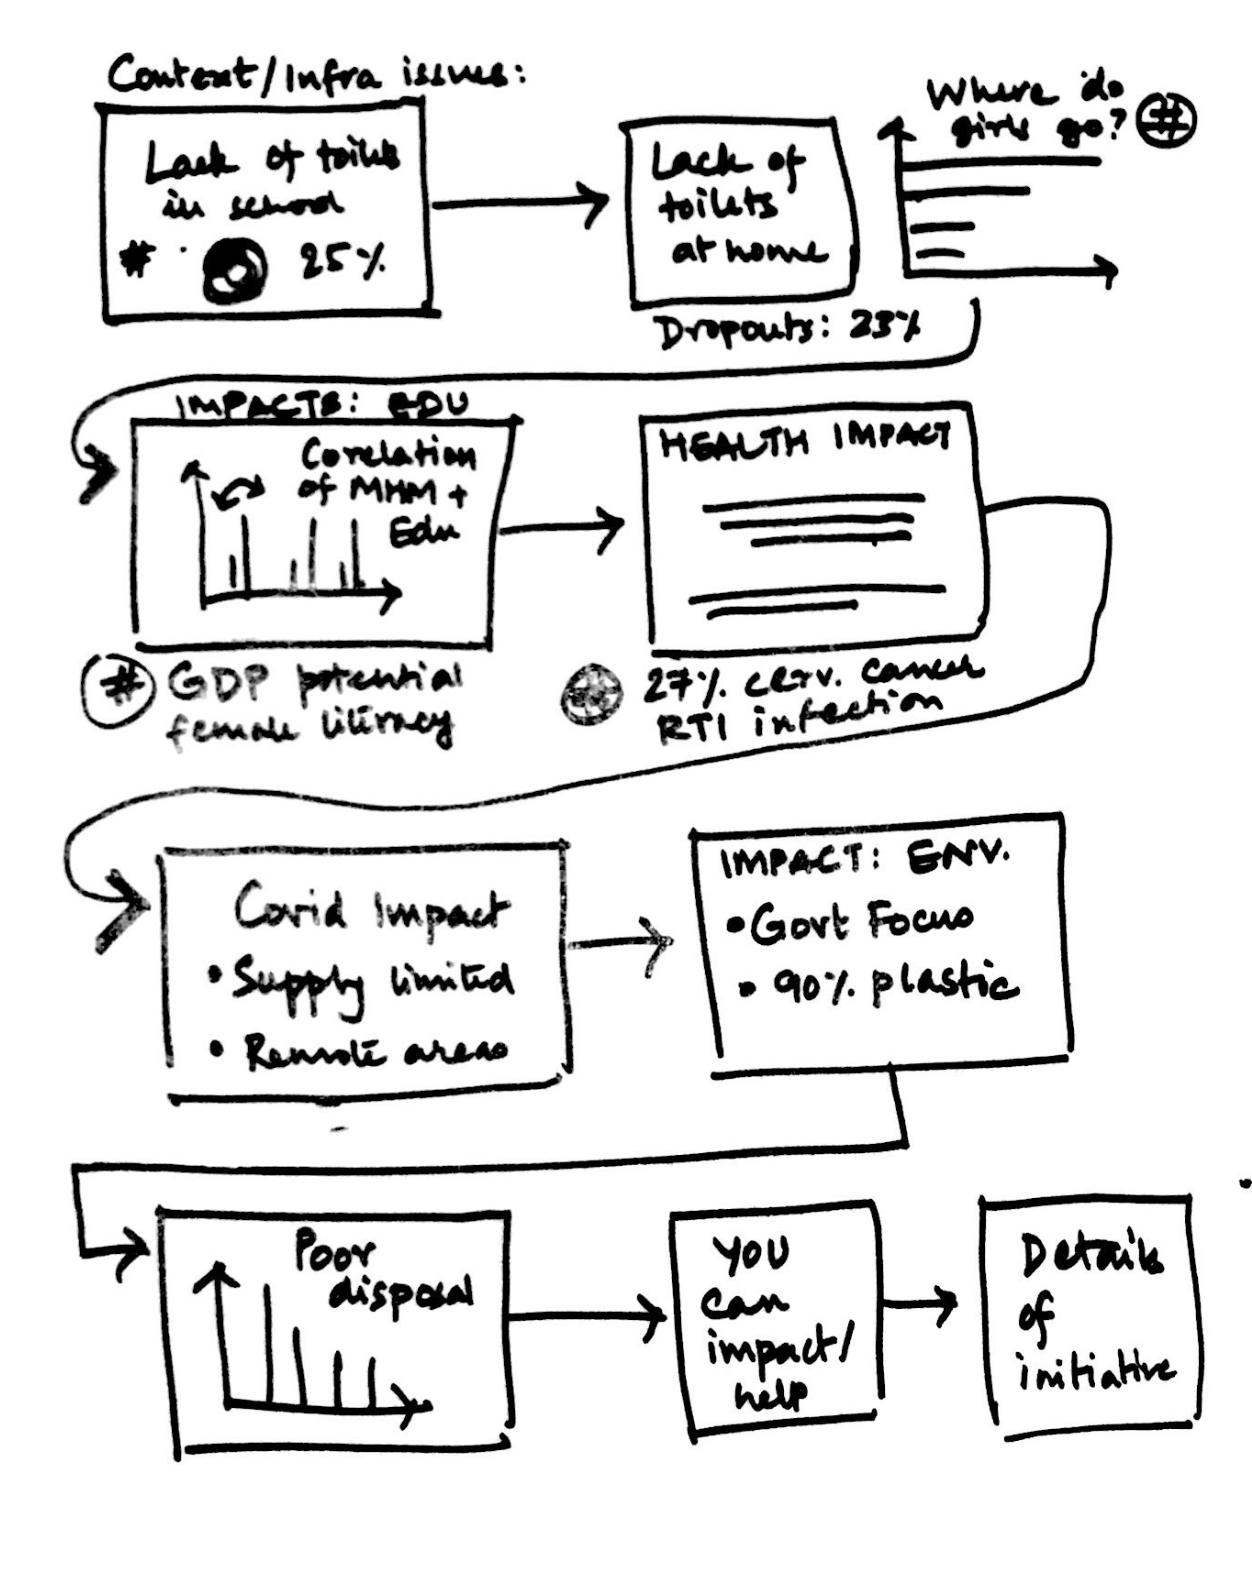 Context/Infra issues:
Lack of toilets
in school
# 25%
Lack of
toilets
at home
Where do
girls go? #
Dropouts: 23%
IMPACTS: EDU
Corelation
of MHM +
Edu
# GDP potential
female literacy
HEALTH IMPACT
27% cerv. cancer
RTI infection
Covid Impact
• Supply limited
• Remote areas
IMPACT: ENV.
• Govt Focus
• 90% plastic
Poor
disposal
YOU
can
impact/
help
Details
of
initiative